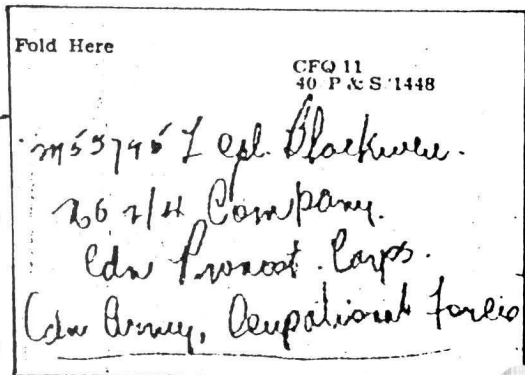 Fold Here
CFQ 11
40 P & S 1448
L Cpl. Blackwell.
Company.
Cdn Provost. Corps.
Cdn Army, Occupational Forces